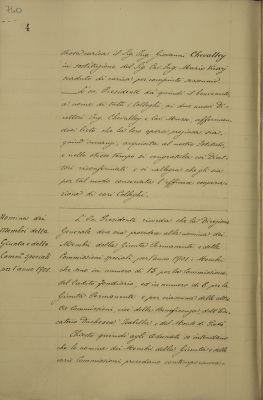 740
4
stessa carica il Sig. Ing. Giovanni Chevalley
in sostituzione del Sig. Cav. Ing. Mario Vicarj
scaduto di carica per compiuto sessennio.
L'on. Presidente dà quindi il benvenuto,
a nome di tutti i Colleghi, ai due nuovi Di-
rettori Ing. Chevalley e
dosi lieto che la loro opera sia
quind'innanzi, acquisita al nostro Istituto,
e nello stesso tempo si congratula coi Diret-
tori riconfermati e si rallegra ch'egli sia
per tal modo conservata l'efficace coopera-
zione di cari Colleghi.
Nomina dei
Membri della
Giunta e delle
Comm.i speciali
per l'anno 1902.
L'On. Presidente ricorda che la Direzione
Generale deve ora procedere alla nomina dei
Membri della Giunta Permanente e delle
Commissioni speciali, per l'anno 1902; Membri
che sono in numero di 18 per la Commissione
del Credito Fondiario, ed in numero di 8 per la
Giunta Permanente e per ciascuna delle altre
Commissioni, cioè della Beneficenza, dell'Edu-
catorio Duchessa Isabella e del Monte di Pietà.
Chiede quindi agli Adunati se intendano
che la nomina dei Membri della Giunta e delle
varie Commissioni procedano contemporanea-